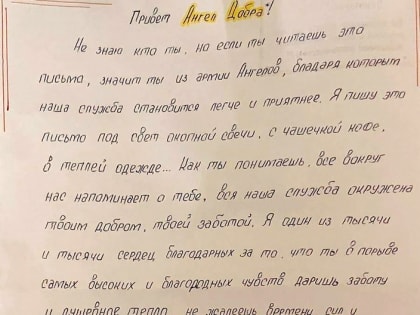 Привет Ангел Добра!
Не знаю кто ты, но если ты читаешь это
письмо, значит ты из армии Ангелов, благодаря которым
наша служба становится легче и приятнее. Я пишу это
письмо под свет окопной свечи, с чашечкой кофе,
в теплей одежде... Как ты понимаешь, все вокруг
нас напоминает о тебе, вся наша служба окружена
твоим добром, твоей заботой. Я один из тысячи
и тысячи сердец благодарных за то, что ты в порыве
самых высоких и благородных чувств даришь заботу
и душевное тепло, не жалеешь времени, сил и